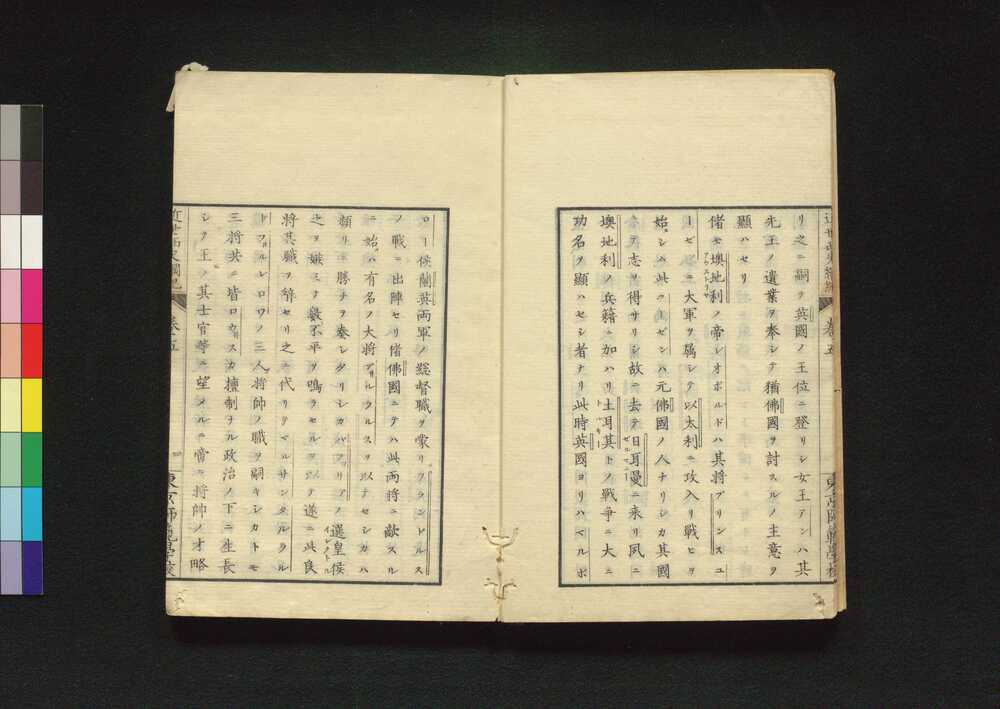 リ之ニ嗣テ英國ノ王位ニ登リシ女王アンハ其
先王ノ遺業ヲ奉シテ猶佛國ヲ討スルノ主意ヲ
顯ハセリ
偖モ墺地利ノ帝レオポルドハ其將プリンスユ
ーゼンニ大軍ヲ属シテ以太利ニ攻入リ戰ヒヲ
始シム此ユーゼンハ元佛國ノ人ナリシカ其國
ニテ志ヲ得サリシ故ニ去テ日耳曼ニ来リ夙ニ
墺地利ノ兵籍ニ加ハリ土耳其トノ戰爭ニ大ニ
功名ヲ顯ハセシ者ナリ此時英國ヨリハマルボ
ロー侯蘭英両軍ノ総督職ヲ蒙リフランドルス
ノ戰ニ出陣セリ偖佛國ニテハ此両將ニ敵スル
ニ始ハ有名ノ大將
頻リニ勝チヲ奏シタリシカバワリアノ選皇侯
之ヲ嫉ミテ數不平ヲ鳴ラセルヲ以テ遂ニ此良
將其職ヲ辞セリ之ニ代リテマルサンタルラル
トワルレロワノ三人將帥ノ職ヲ嗣キシカトモ
三將共ニ皆ロウスカ擅制ナル政治ノ下ニ生長
シテ王ノ其士官等ニ望メルニ啻ニ將帥ノ才略
近世西史綱紀
卷五
東京師範學校